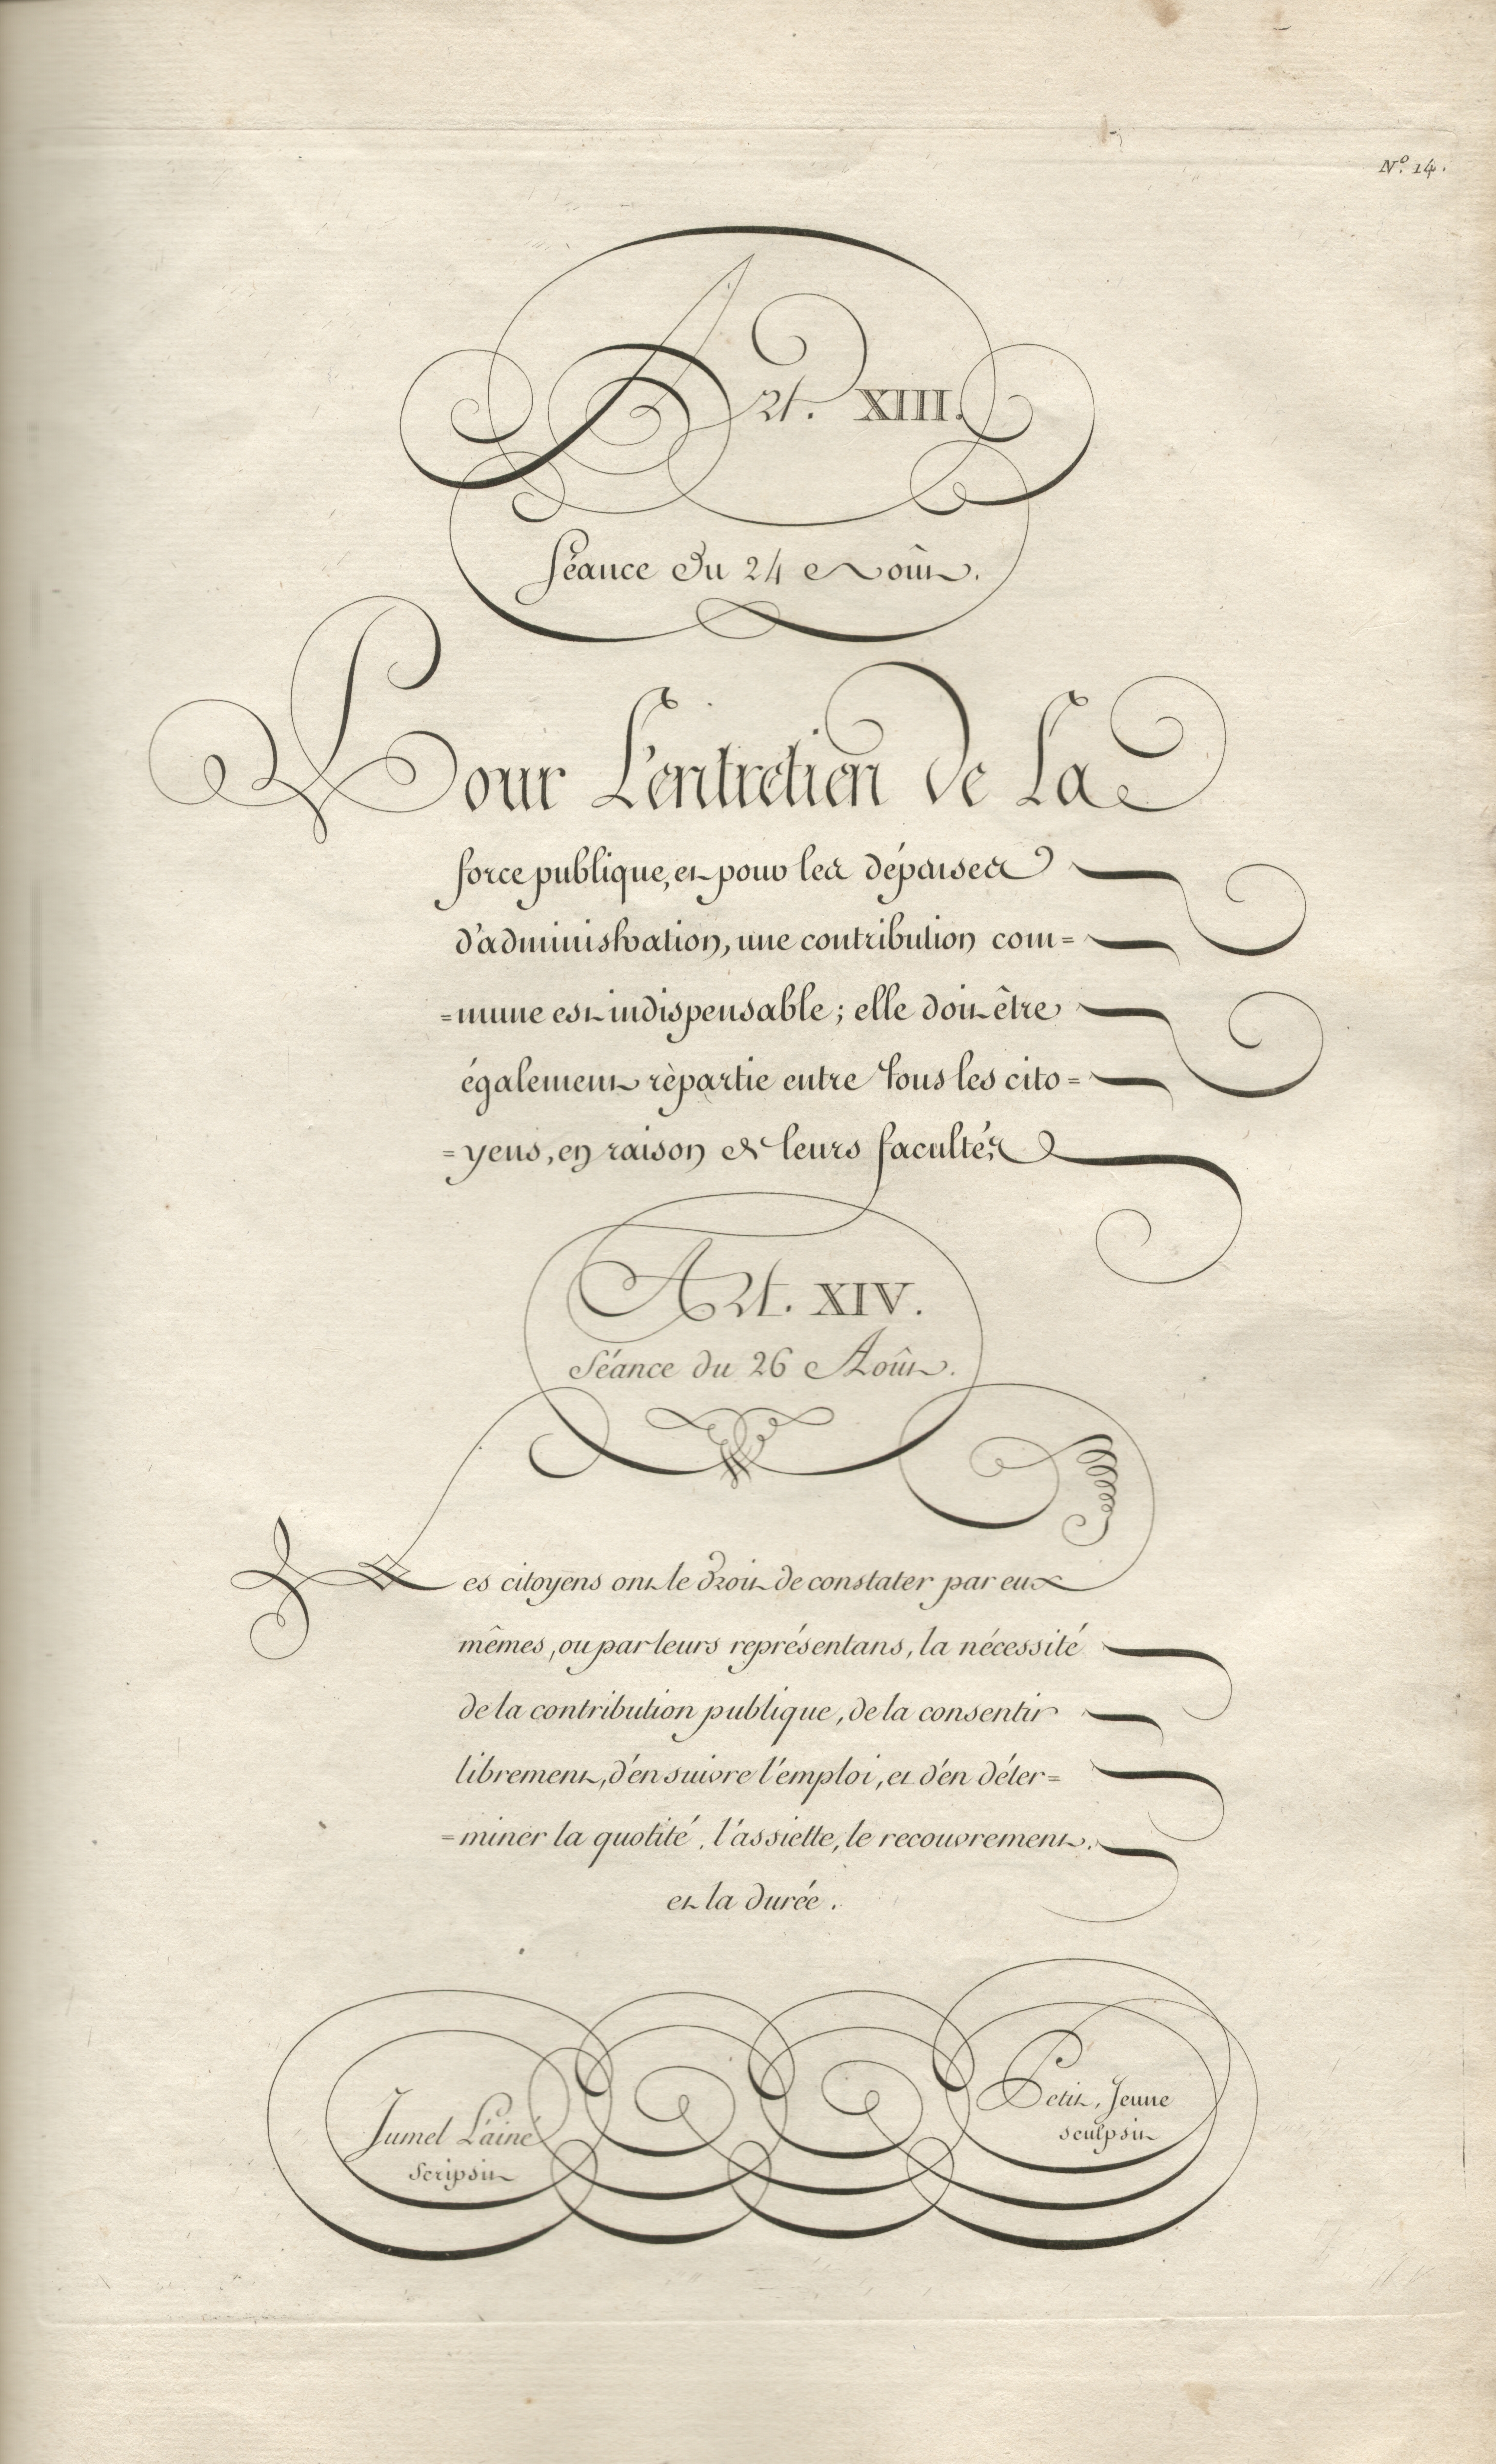 N.º 14.
Art. XIII.
Séance du 24 Août.
Pour L'entretien de La
force publique, et pour les dépenses
d'administration, une contribution com=
=mune est indispensable ; elle doit être
également rèpartie entre tous les cito=
=yens, en raison de leurs facultés.
Art. XIV.
Séance du 26 Août.
Les citoyens ont le droit de constater par eux
mêmes, ou par leurs représentans, la nécessité
de la contribution publique, de la consentir
librement, d'en suivre l'emploi, et d'en déter=
=miner la quotité, l'assiette, le recouvrement.
et la durée.
Jumel L'ainé
Scripsit
Petit, Jeune
sculpsit